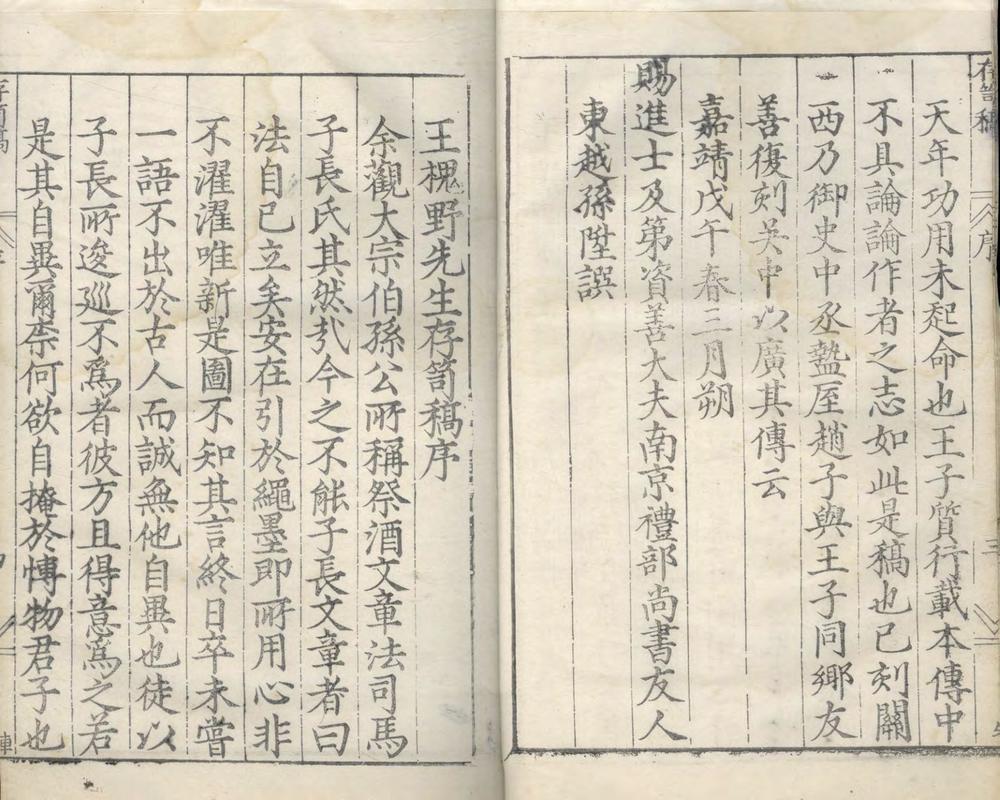 存笥稿
序
三
天年功用未起命也王子質行載本傳中
不具論論作者之志如此是稿也已刻關
西乃御史中丞盩厔趙子與王子同鄉友
善復刻吴中以廣其傳云
嘉靖戊午春三月朔
賜進士及第資善大夫南京禮部尚書友人
東越孫陞譔
王槐野先生存笥稿序
余觀大宗伯孫公所稱祭酒文章法司馬
子長氏其然㢤今之不能子長文章者曰
法自己立矣安在引於繩墨即所用心非
不濯濯唯新是圖不知其言終日卒未嘗
一語不出於古人而誠無他自異也徒以
子長所逡巡不為者彼方且得意為之若
是其自異爾柰何欲自掩於博物君子也